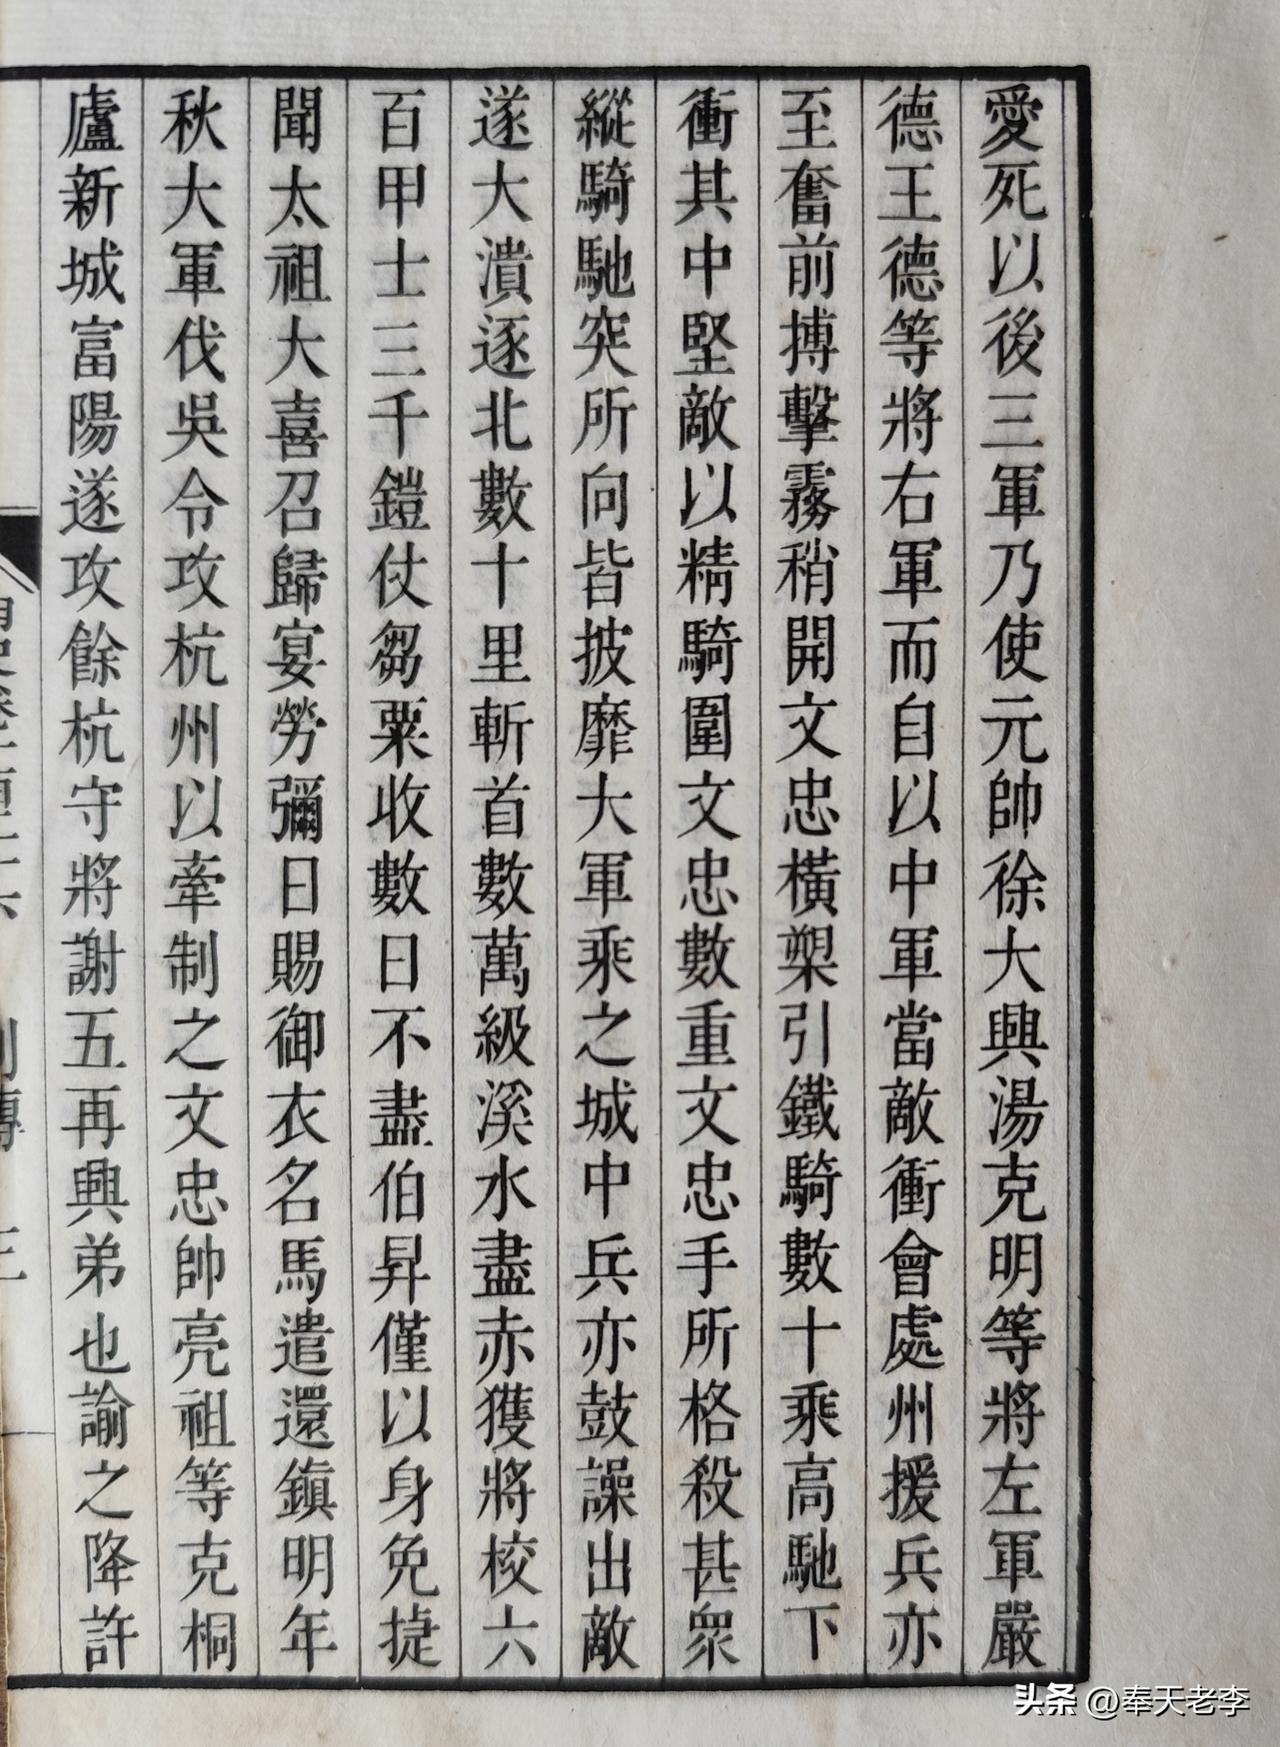 愛死以後三軍乃使元帥徐大興湯克明等將左軍嚴
德王德等將右軍而自以中軍當敵衝會處州援兵亦
至奮前搏擊霧稍開文忠橫槊引鐵騎數十乘高馳下
衝其中堅敵以精騎圍文忠數重文忠手所格殺甚眾
縱騎馳突所向皆披靡大軍乘之城中兵亦鼓譟出敵
遂大潰逐北數十里斬首數萬級溪水盡赤獲將校六
百甲士三千鎧仗芻粟收數日不盡伯昇僅以身免捷
聞太祖大喜召歸宴勞彌日賜御衣名馬遣還鎮明年
秋大軍伐吳令攻杭州以牽制之文忠帥亮祖等克桐
廬新城富陽遂攻餘杭守將謝五再興弟也諭之降許
列傳 三
头条 @奉天老李